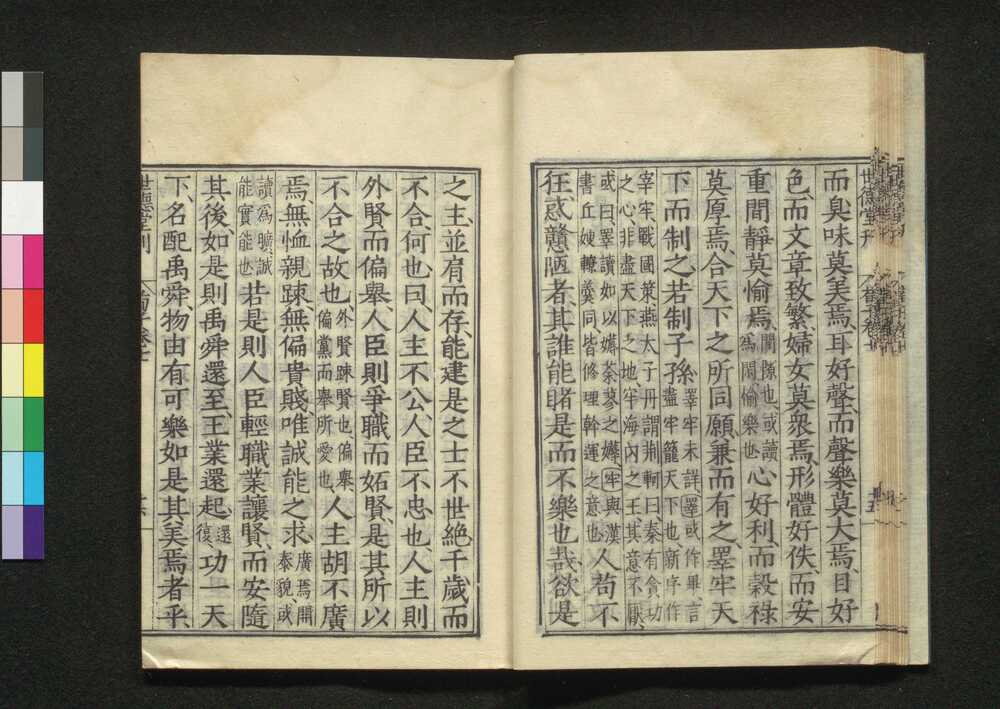 而臭味莫美焉耳好聲而聲樂莫大焉目好
色而文章致繁婦女莫衆焉形體好佚而安
重閒靜莫愉焉閒隙也或讀爲閑愉樂也心好利而穀祿
莫厚焉合天下之所同願兼而有之睪牢天
下而制之若制子孫睪牢未詳睪或作畢言盡牢籠天下也新序作
宰牢戰國策燕太子丹謂荆軻曰秦有貪功之心非盡天下之地牢海内之王其意不厭
或曰睪讀如以薅荼蓼之薅牢與漢書丘嫂轑羹同皆脩理幹運之意也人苟不
狂惑戇陋者其誰能睹是而不樂也哉欲是
之主並肩而存能建是之士不世絶千歲而
不合何也曰人主不公人臣不忠也人主則
外賢而偏舉人臣則爭職而妬賢是其所以
不合之故也外賢踈賢也偏舉偏黨而舉所愛也人主胡不廣
焉無恤親踈無偏貴賤唯誠能之求廣焉開泰貌或
讀爲曠誠能實能也若是則人臣輕職業讓賢而安隨
其後如是則禹舜還至王業還起還復功一天
下名配禹舜物由有可樂如是其美焉者乎
世德堂刊